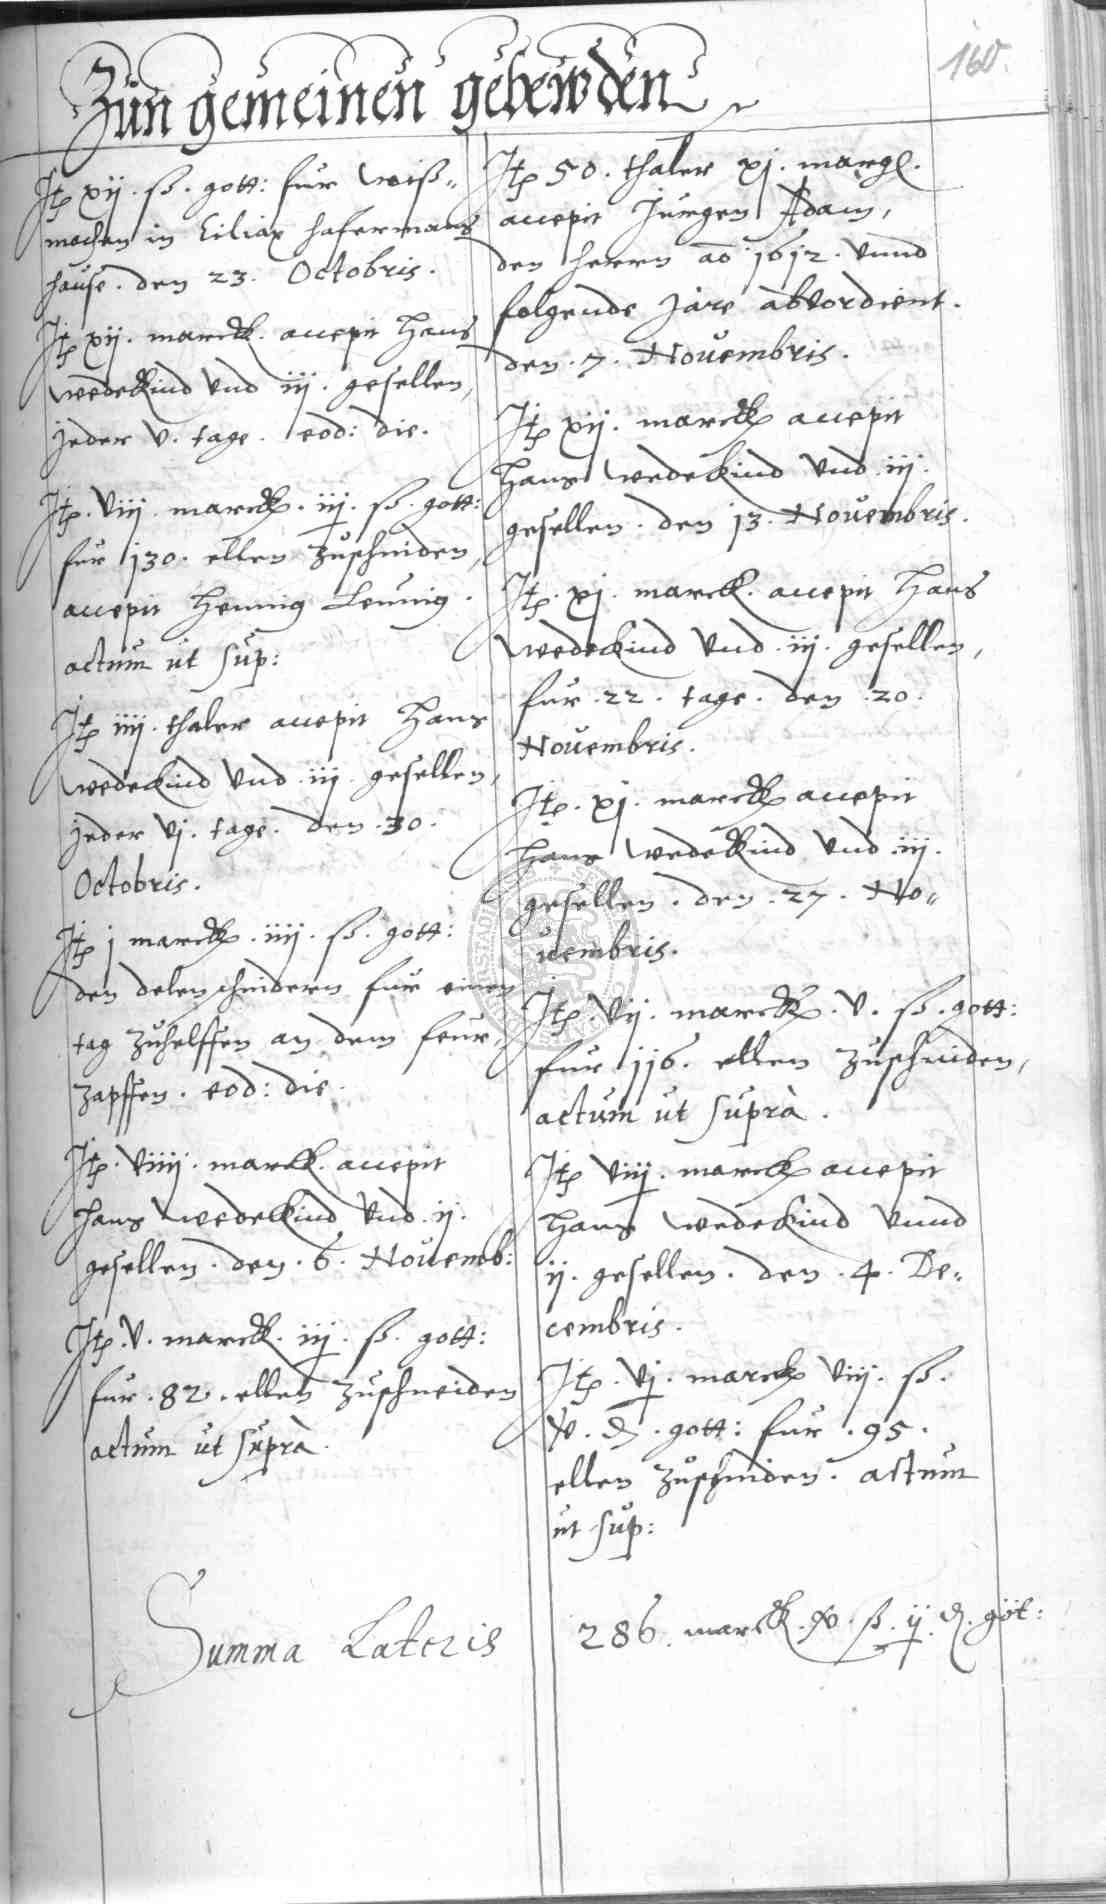 160.
Zun gemeinen gebewden
Jtp xij. ß. gott: fur weiß„
machen in Ciliax hafermans
hause. den 23. Octobris.
Jtp xij. marck. accepit Hans
wedekind vnd iij. gesellen,
jeder v. tage. eod: die.
Jtp. viij. marck. iij. ß. gott:
fur 130. ellen zuschniden,
accepit Hennig Lennig.
actum ut sup:
Jtp iiij. thaler accepit Hans
wedekind vnd iij. gesellen,
jeder vj. tage. den .30.
Octobris.
Jtp j marck. iiij. ß. gott:
den delenschnidern fur einen
tag zuhelffen an dem feur,
zapffen. eod: die.
Jtp. viiij. marck. accepit
Hans wedekind vnd ij.
gesellen. den. 6. Nouemb:
Jtp. v. marck. iij. ß. gott:
fur .82. ellen zuschneiden
actum ut suprà.
Jtp 50. thaler xj. margl.
accepit Jurgen Adam,
den herrn ao 1612. vnnd
folgende Jare abvordient.
den .7. Nouembris.
Jtp xij. marck accepit
Hans wedekind vnd iij.
gesellen. den 13. Nouembris.
Jtp. xj. marck. accepit Hans
wedekind vnd .iij. gesellen,
fur .22. tage. den .20.
Nouembris.
Jtp. xj. marck accepit
Hans wedekind vnd .iij.
gesellen. den .27. No„
uembris.
Jtp. vij. marck. v. ß. gott:
fur 116. ellen zuschneiden,
actum ut suprà.
Jtp viij. marck accepit
Hans wedekind vnnd
ij. gesellen. den .4. De„
cembris.
Jtp. vj. marck viij. ß.
v. d. gott: fur .95.
ellen zuschniden. actum
ut sup:
Summa Lateris 286. marck. xv. ß. ij. d. gött: